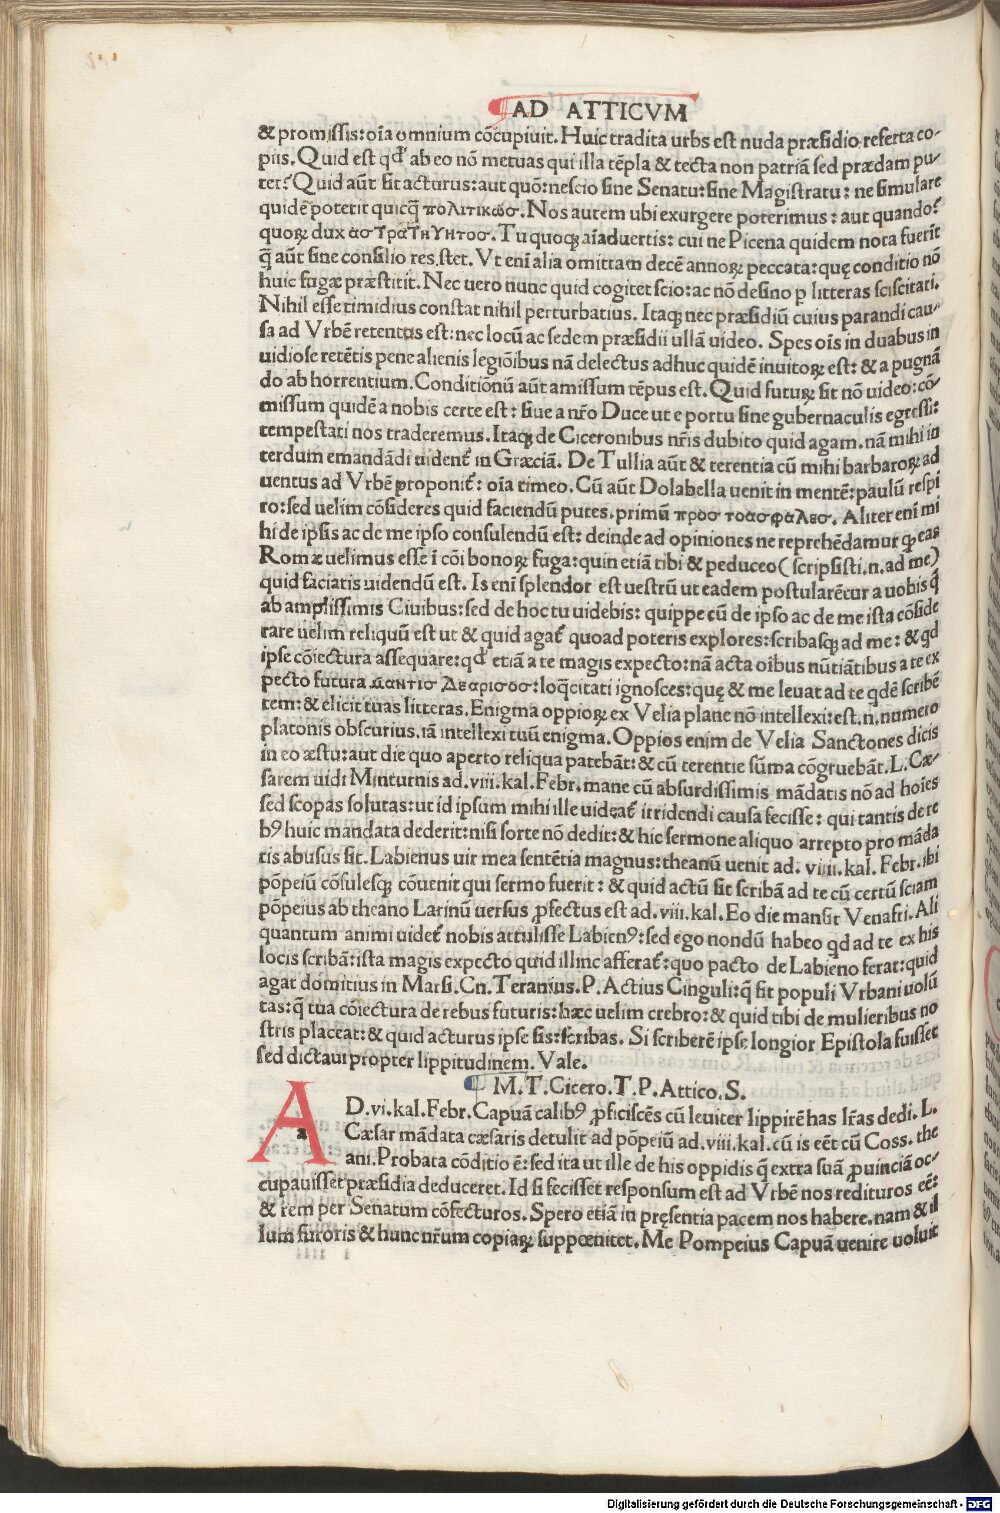 AD ATTICVM
& promissis: oīa omnium cōcupiuit. Huic tradita urbs est nuda præsidio referta co⸗
piis. Quid est qđ ab eo nō metuas qui illa tēpla & tecta non patriā sed prædam pu⸗
tet? Quid aūt sit acturus: aut quō: nescio sine Senatu: sine Magistratu: ne simulare
quidē poterit quicq̄ πολιτικωσ. Nos autem ubi exurgere poterimus: aut quando?
quoꝝ dux αστρατηγητοσ. Tu quoqꝫ aīaduertis: cui ne Picena quidem nota fuerīt
q̄ aūt sine consilio res.stet. Vt enī alia omittam decē annoꝝ peccata: quę conditio nō
huic fugæ præstitit. Nec uero nunc quid cogitet scio: ac nō desino ꝑ litteras sciscitari.
Nihil esse timidius constat nihil perturbatius. Itaqꝫ nec præsidiū cuius parandi cau⸗
sa ad Vrbē retentus est: nec locū ac sedem præsidii ullā uideo. Spes oīs in duabus in
uidiose retētis pene alienis legiōibus nā delectus adhuc quidē inuitoꝝ est: & a pugnā
do ab horrentium. Conditiōnū aūt amissum tēpus est. Quid futuꝝ sit nō uideo: cō⸗
missum quidē a nobis certe est: siue a nr̄o Duce ut e portu sine gubernaculis egressi:
tempestati nos traderemus. Itaqꝫ de Ciceronibus nr̄is dubito quid agam. nā mihi in
terdum emandādi uident᷑ in Græciā. De Tullia aūt & terentia cū mihi barbaroꝝ ad
uentus ad Vrbē proponit᷑: oīa timeo. Cū aūt Dolabella uenit in mentē: paulū respi
ro: sed uelim cōsideres quid faciendū putes. primū προσ τοασφαλεσ. Aliter enī mi
hi de ipsis ac de me ipso consulendū est: deinde ad opiniones ne reprehēdamur qꝫ eas
Romæ uelimus esse ī cōi bonoꝝ fuga: quin etiā tibi & peduceo (scripsisti.n.ad me)
quid faciatis uidendū est. Is enī splendor est uestrū ut eadem postularētur a uobis q̄
ab amplissimis Ciuibus: sed de hoc tu uidebis: quippe cū de ipso ac de me ista cōside
rare uelim reliquū est ut & quid agat᷑ quoad poteris explores: scribasqꝫ ad me: & qđ
ipse cōiectura assequare: qđ etiā a te magis expecto: nā acta oībus nūtiātibus a te ex
pecto futura μαντισ Δεαρισοσ: loq̄citati ignosces: quę & me leuat ad te qđē scribē
tem: & elicit tuas litteras. Enigma oppioꝝ ex Velia plane nō intellexi: est.n.numero
platonis obscurius. ıā intellexi tuū enigma. Oppios enim de Velia Sanctones dicis
in eo æstu: aut die quo aperto reliqua patebāt: & cū terentie sūma cōgruebāt. L. Cæ⸗
sarem uidi Minturnis ad.viii.kal.Febr.mane cū absurdissimis mādatis nō ad hoīes
sed scopas solutas: ut id ipsum mihi ille uideat᷑ irridendi causa fecisse: qui tantis de re
bꝰ huic mandata dederit: nisi forte nō dedit: & hic sermone aliquo arrepto pro māda
tis abusus sit. Labienus uir mea sentētia magnus: theanū uenit ad. viiii.kal. Febr.ibi
pōpeiū cōsulesqꝫ cōuenit qui sermo fuerit: & quid actū sit scribā ad te cū certū sciam
pōpeius ab theano Larinū uersus ꝓfectus est ad.viii.kal.Eo die mansit Venafri.Ali
quantum animi uidet᷑ nobis attulisse Labienꝰ: sed ego nondū habeo qđ ad te ex his
locis scribā: ista magis expecto quid illinc afferat᷑: quo pacto de Labieno ferat: quid
agat domitius in Marsi. Cn. Teranius. P. Actius Cinguli: q̄ sit populi Vrbani uolū
tas: q̄ tua cōiectura de rebus futuris: hæc uelim crebro: & quid tibi de mulieribus no
stris placeat: & quid acturus ipse sis: scribas. Si scriberē ipse longior Epistola fuisset
sed dictaui propter lippitudinem. Vale.
M. T. Cicero. T. P. Attico. S.
A
a
D.vi.kal.Febr.Capuā calibꝰ ꝓficiscēs cū leuiter lippirē has lr̄as dedi. L.
Cæsar mādata cæsaris detulit ad pōpeiū ad.viii.kal.cū is eēt cū Coss.the
ani. Probata cōditio ē: sed ita ut ille de his oppidis q̄ extra suā ꝓuinciā oc⸗
cupauisset præsidia deduceret. Id si fecisset responsum est ad Vrbē nos redituros eē:
& rem per Senatum cōfecturos. Spero etiā in pręsentia pacem nos habere. nam & il
lum furoris & hunc nr̄um copiaꝝ suppœnitet. Me Pompeius Capuā uenire uoluit
Digitalisierung gefördert durch die Deutsche Forschungsgemeinschaft - DFG